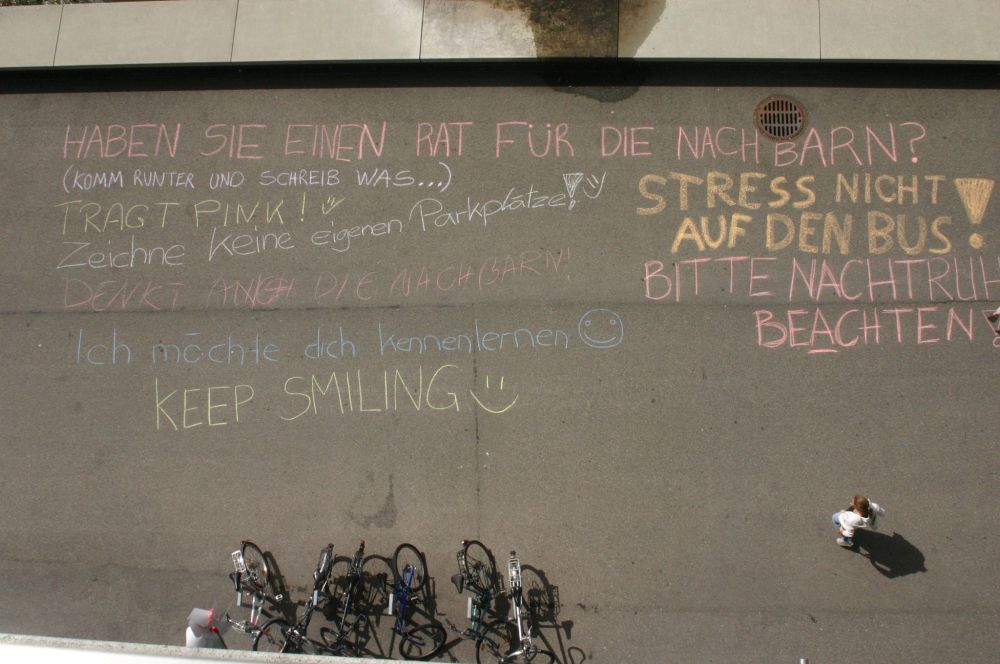 HABEN SIE EINEN RAT FÜR DIE NACHBARN?
(KOMM RUNTER UND SCHREIB WAS...)
TRAGT PINK!
Zeichne keine eigenen Parkplätze!
DENKT AN DIE NACHBARN!
Ich möchte dich kennenlernen
KEEP SMILING
STRESS NICHT
AUF DEN BUS!
BITTE NACHTRUH
BEACHTEN!